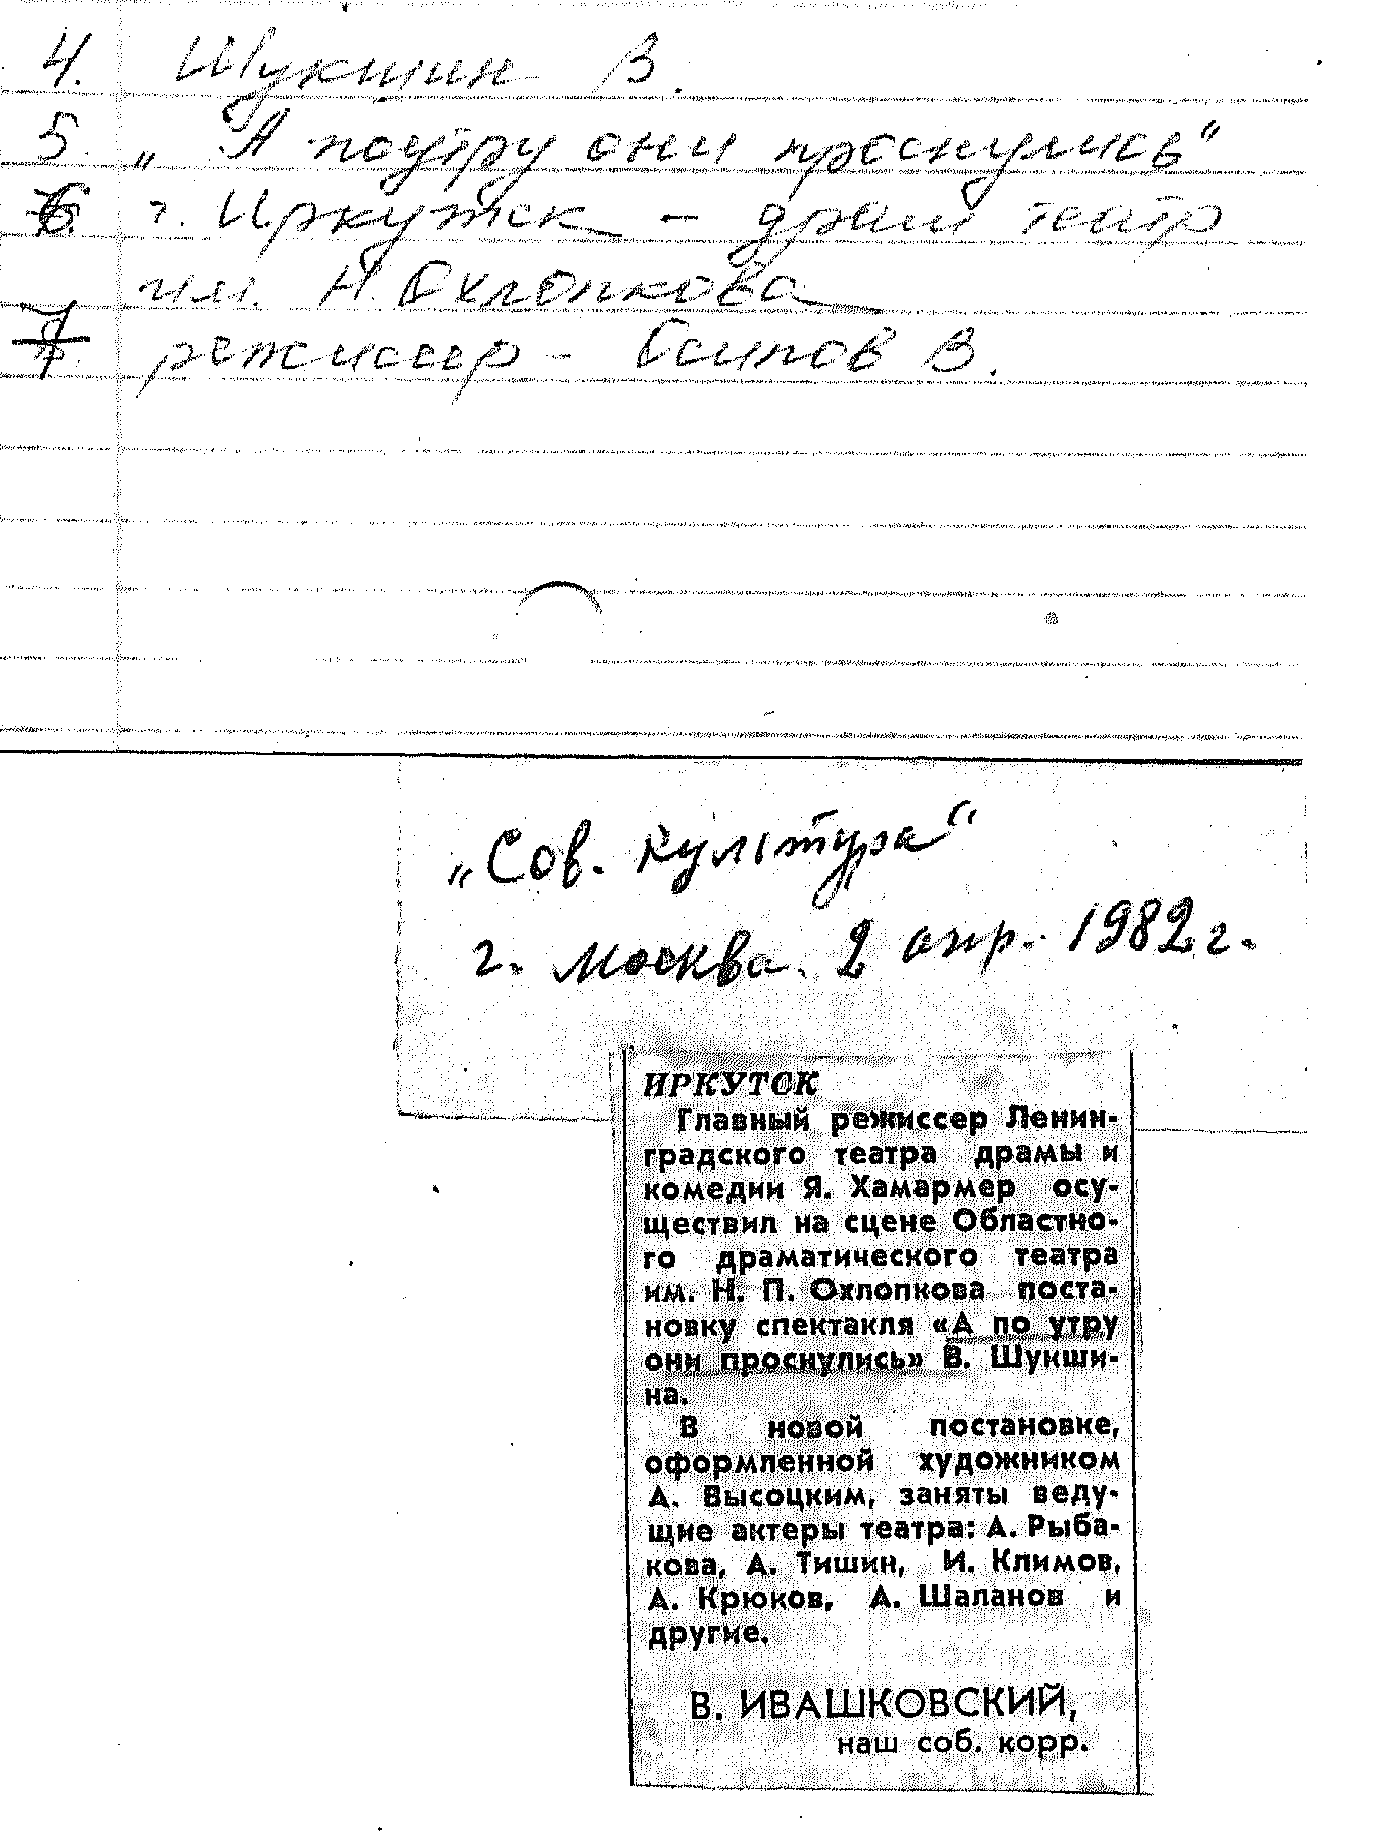 4. Шукшин В.
5. „А поутру они проснулись“
6. г. Иркутск – драм театр
им. Н. Охлопкова
7. режиссер – Осипов В.
„Сов. культура“
г. Москва. 2 апр. 1982 г.
ИРКУТСК
Главный режиссер Ленин-
градского театра драмы и
комедии Я. Хамармер осу-
ществил на сцене Областно-
го драматического театра
им. Н. П. Охлопкова поста-
новку спектакля «А по утру
они проснулись» В. Шукши-
на.
В новой постановке,
оформленной художником
А. Высоцким, заняты веду-
щие актеры театра: А. Рыба-
кова, А. Тишин, И. Климов,
А. Крюков, А. Шаланов и
другие.
В. ИВАШКОВСКИЙ,
наш соб. корр.